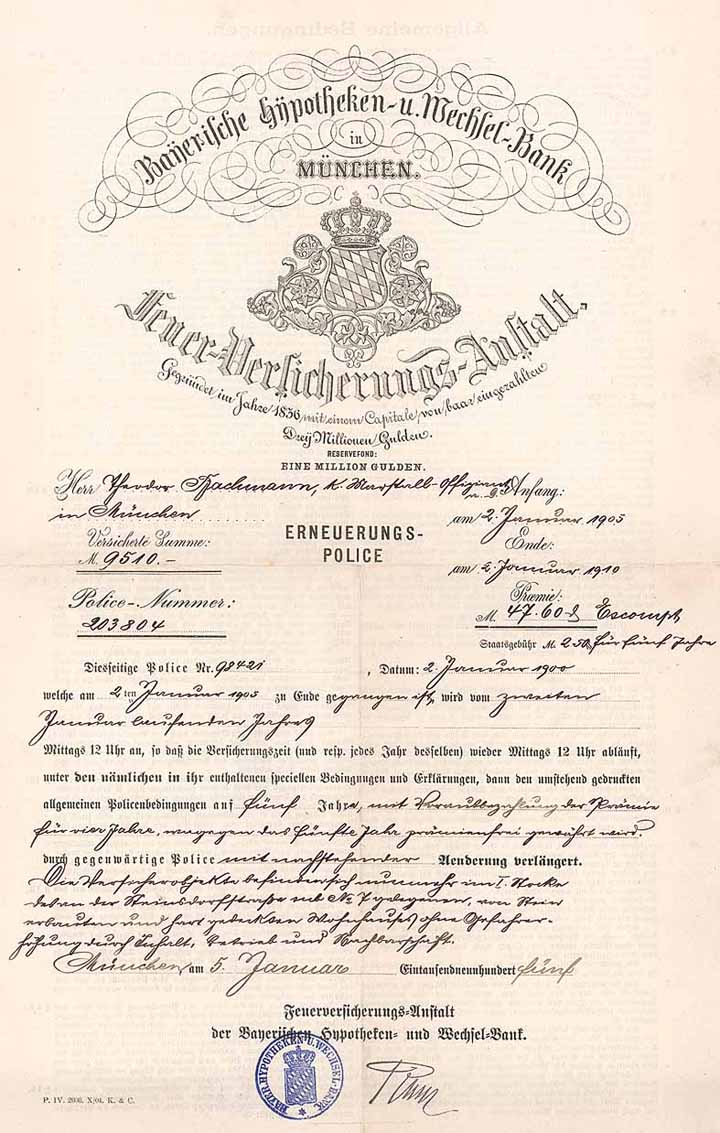 Bayerische Hypotheken- u. Wechsel-Bank
in
MÜNCHEN.
Feuer-Versicherungs-Anstalt.
Gegründet im Jahre 1836 mit einem Capitale von baar eingezahlten
Dreÿ Millionen Gulden.
RESERVEFOND:
EINE MILLION GULDEN.
Herr Theodor Bachmann, K. Marstall-Offiziant
in München
Anfang:
am 2. Januar 1905
Versicherte Summe:
M. 9510.-
ERNEUERUNGS-
POLICE
Ende:
am 2. Januar 1910
Police-Nummer:
203804
Præmie:
M. 47.60 Escompt
Staatsgebühr M. 2 50 für fünf Jahre
Diesseitige Police Nr. 98421, Datum: 2. Januar 1900
welche am 2ten Januar 1905 zu Ende gegangen ist, wird vom zweiten
Januar laufenden Jahres
Mittags 12 Uhr an, so daß die Versicherungszeit (und resp. jedes Jahr desselben) wieder Mittags 12 Uhr abläuft,
unter den nämlichen in ihr enthaltenen speciellen Bedingungen und Erklärungen, dann den umstehend gedruckten
allgemeinen Policenbedingungen auf fünf Jahre, mit Vorausbezahlung der Prämie
für vier Jahre, wogegen das fünfte Jahr prämienfrei gewährt wird.
durch gegenwärtige Police mit nachstehender Aenderung verlängert.
Die Versicherobjekte befinden sich nunmehr im I. Stocke
des an der Steinsdorfstraße sub No 7 gelegenen, von Stein
erbauten und hart gedeckten Wohnhauses ohne Gefahrer-
höhung durch Inhalt, Betrieb und Nachbarschaft.
München, am 5. Januar Eintausendneunhundert fünf
Feuerversicherungs-Anstalt
der Bayerischen Hypotheken- und Wechsel-Bank.
BAYER. HYPOTHEKEN- U. WECHSEL-BANK
P. IV. 2000. X/04. K. & C.